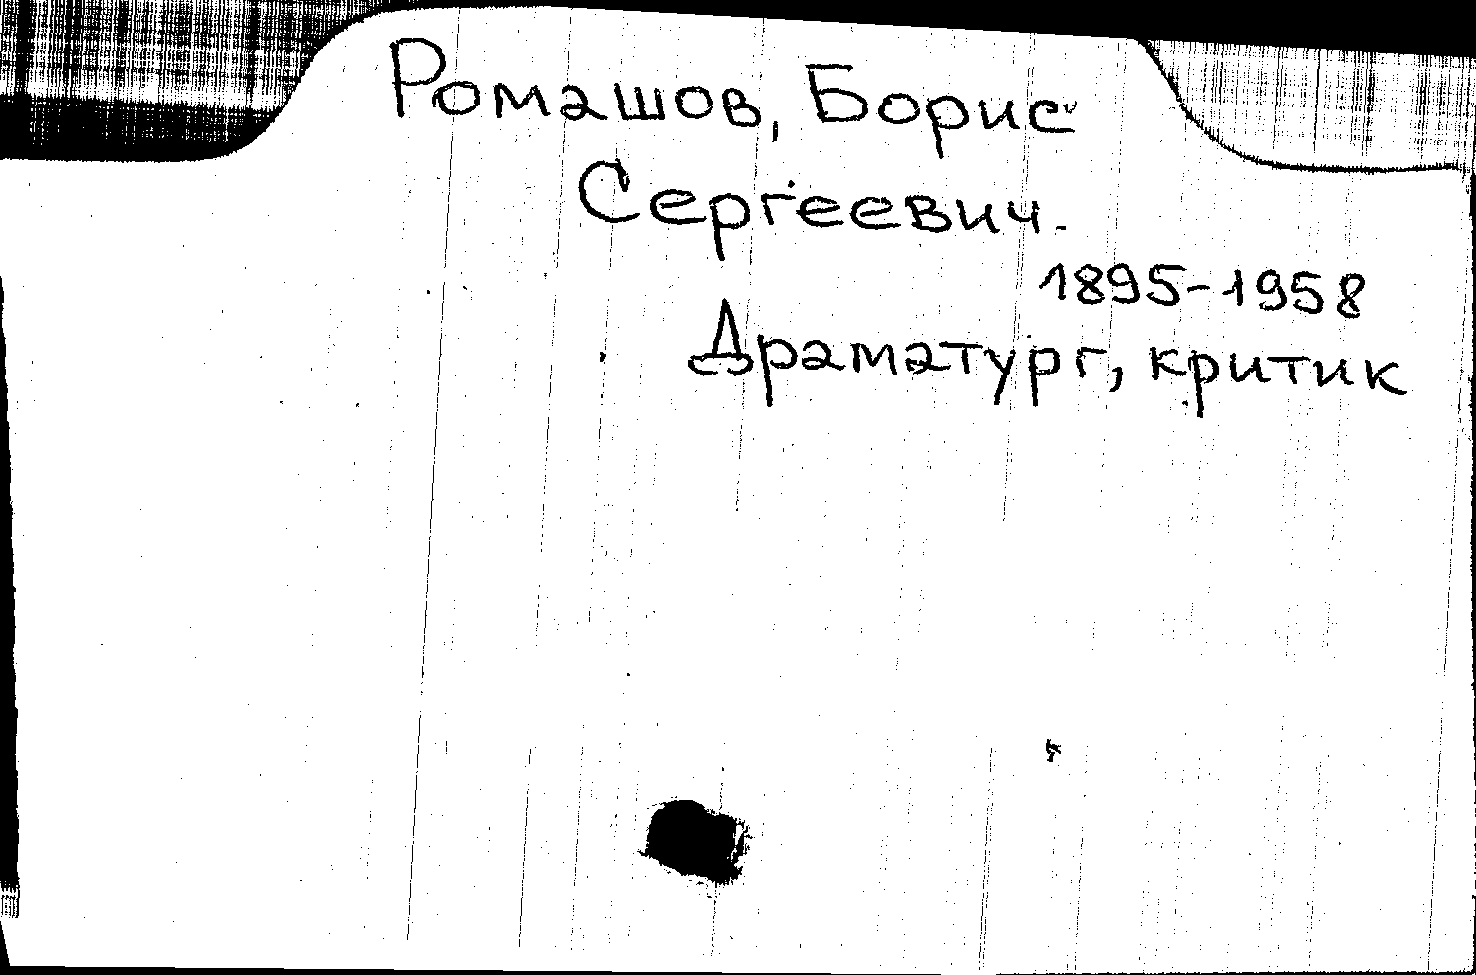 Ромашов, Борис
Сергеевич.
1895-1958
Драматург, критик